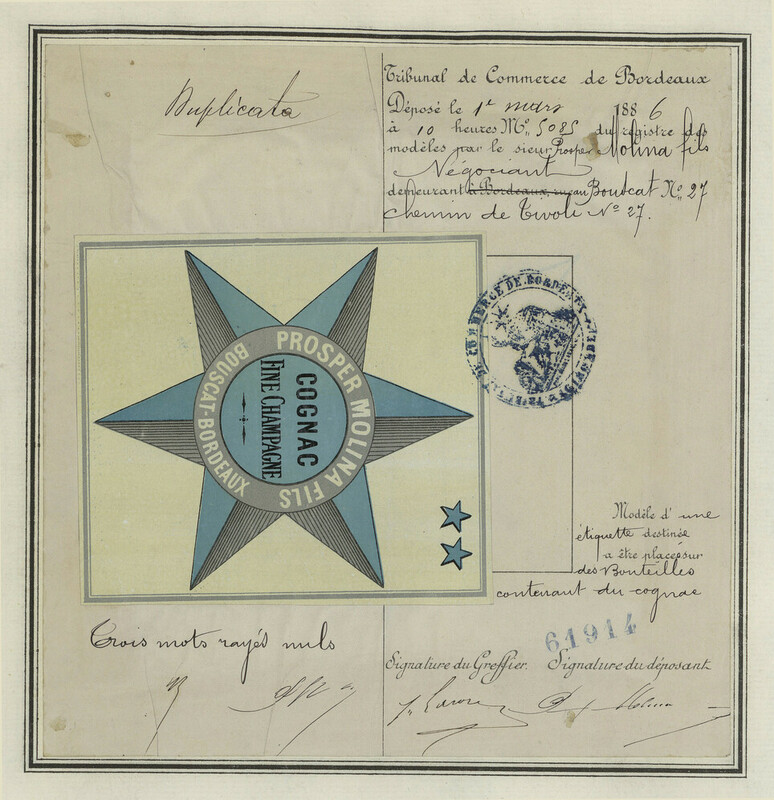 Duplicata
Tribunal de Commerce de Bordeaux
Déposé le 1er mars 1886
à 10 heures M. No 5085 du registre des
modèles par le sieur Prosper Molina fils
Négociant
demeurant à Bordeaux, rue au Bouscat No 27
chemin de Tivoli No 27.
PROSPER MOLINA FILS
BOUSCAT-BORDEAUX
COGNAC
FINE CHAMPAGNE
Modèle d'une
étiquette destinée
a être placée sur
des Bouteilles
contenant du cognac
Trois mots rayés nuls
61914
Signature du Greffier. Signature du déposant